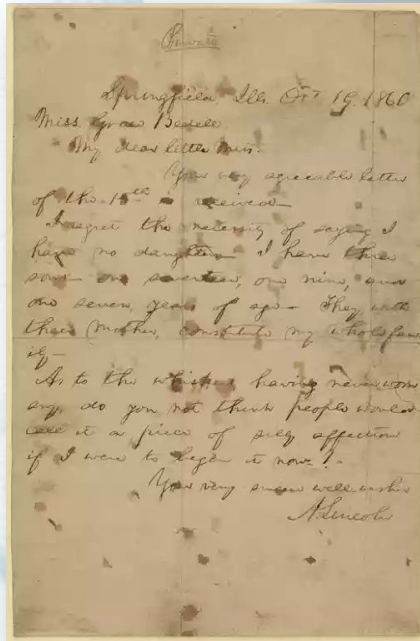 Private
Springfield, Ills. Oct 19. 1860
Miss. Grace Bedell
My dear little Miss.
Your very agreeable letter
of the 15th is received
I regret the necessity of saying I
have no daughters I have three
sons one seventeen, one nine, and
one seven, years of age They, with
their mother, constitute my whole fam
ily
As to the whiskers having never worn
any, do you not think people would
call it a piece of silly affection
if I were to begin it now?
Your very sincere well wisher
A. Lincoln